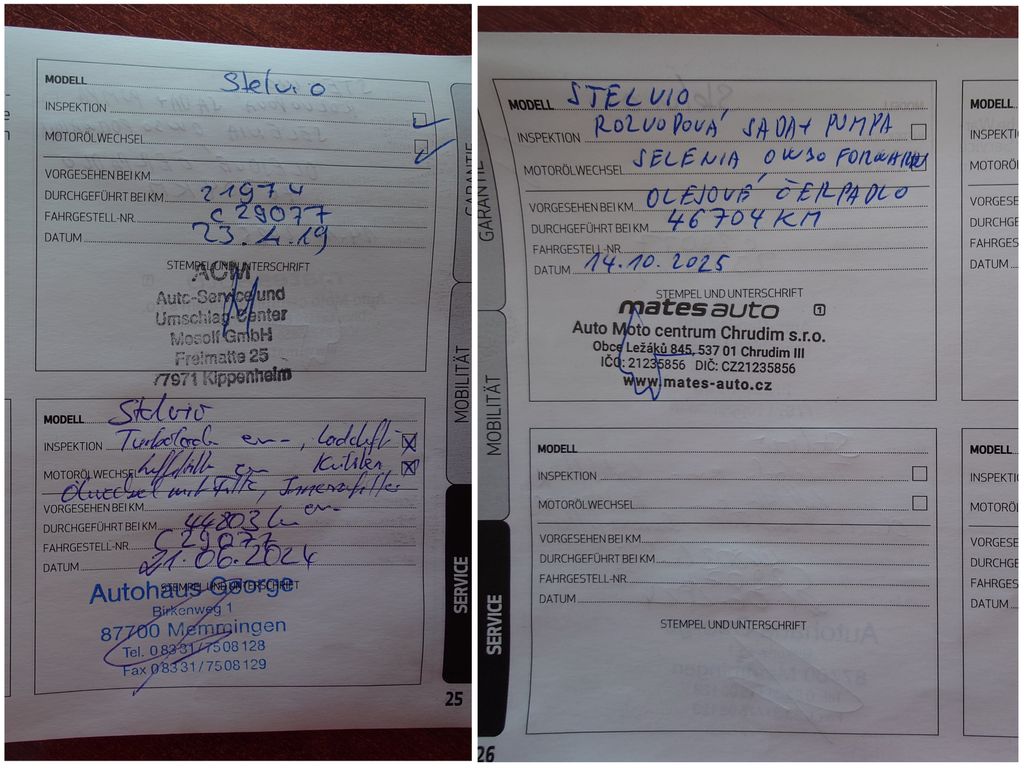 MODELL Stelvio
INSPEKTION
MOTORÖLWECHSEL
VORGESEHEN BEI KM
DURCHGEFÜHRT BEI KM 21974
FAHRGESTELL-NR. C29077
DATUM 23.4.19
STEMPEL UND UNTERSCHRIFT
ACM
Auto-Service und
Umschlag-Center
Mosolf GmbH
Freimatte 25
77971 Kippenheim
MODELL Stelvio
INSPEKTION
MOTORÖLWECHSEL
Ölwechsel mit Filter,
VORGESEHEN BEI KM
DURCHGEFÜHRT BEI KM 44803 km
FAHRGESTELL-NR. C29077
DATUM 21.06.2024
STEMPEL UND UNTERSCHRIFT
Autohaus George
Birkenweg 1
87700 Memmingen
Tel. 08331/7508128
Fax 08331/7508129
GARANTIE
MOBILITÄT
SERVICE
25
MODELL STELVIO
INSPEKTION ROZVODOVÁ SADA + PUMPA
MOTORÖLWECHSEL SELENIA 0W30 FORWARD
OLEJOVÉ ČERPADLO
VORGESEHEN BEI KM
DURCHGEFÜHRT BEI KM 46704 KM
FAHRGESTELL-NR.
DATUM 14.10.2025
STEMPEL UND UNTERSCHRIFT
mates auto 1
Auto Moto centrum Chrudim s.r.o.
Obce Ležáků 845, 537 01 Chrudim III
IČO: 21235856 DIČ: CZ21235856
www.mates-auto.cz
MODELL
INSPEKTION
MOTORÖLWECHSEL
VORGESEHEN BEI KM
DURCHGEFÜHRT BEI KM
FAHRGESTELL-NR.
DATUM
STEMPEL UND UNTERSCHRIFT
GARANTIE
MOBILITÄT
SERVICE
26
MODELL
INSPEKTI
MOTORÖ
VORGES
DURCHGE
FAHRGES
DATUM
MODELL
INSPEKTI
MOTORÖL
VORGES
DURCHGE
FAHRGES
DATUM